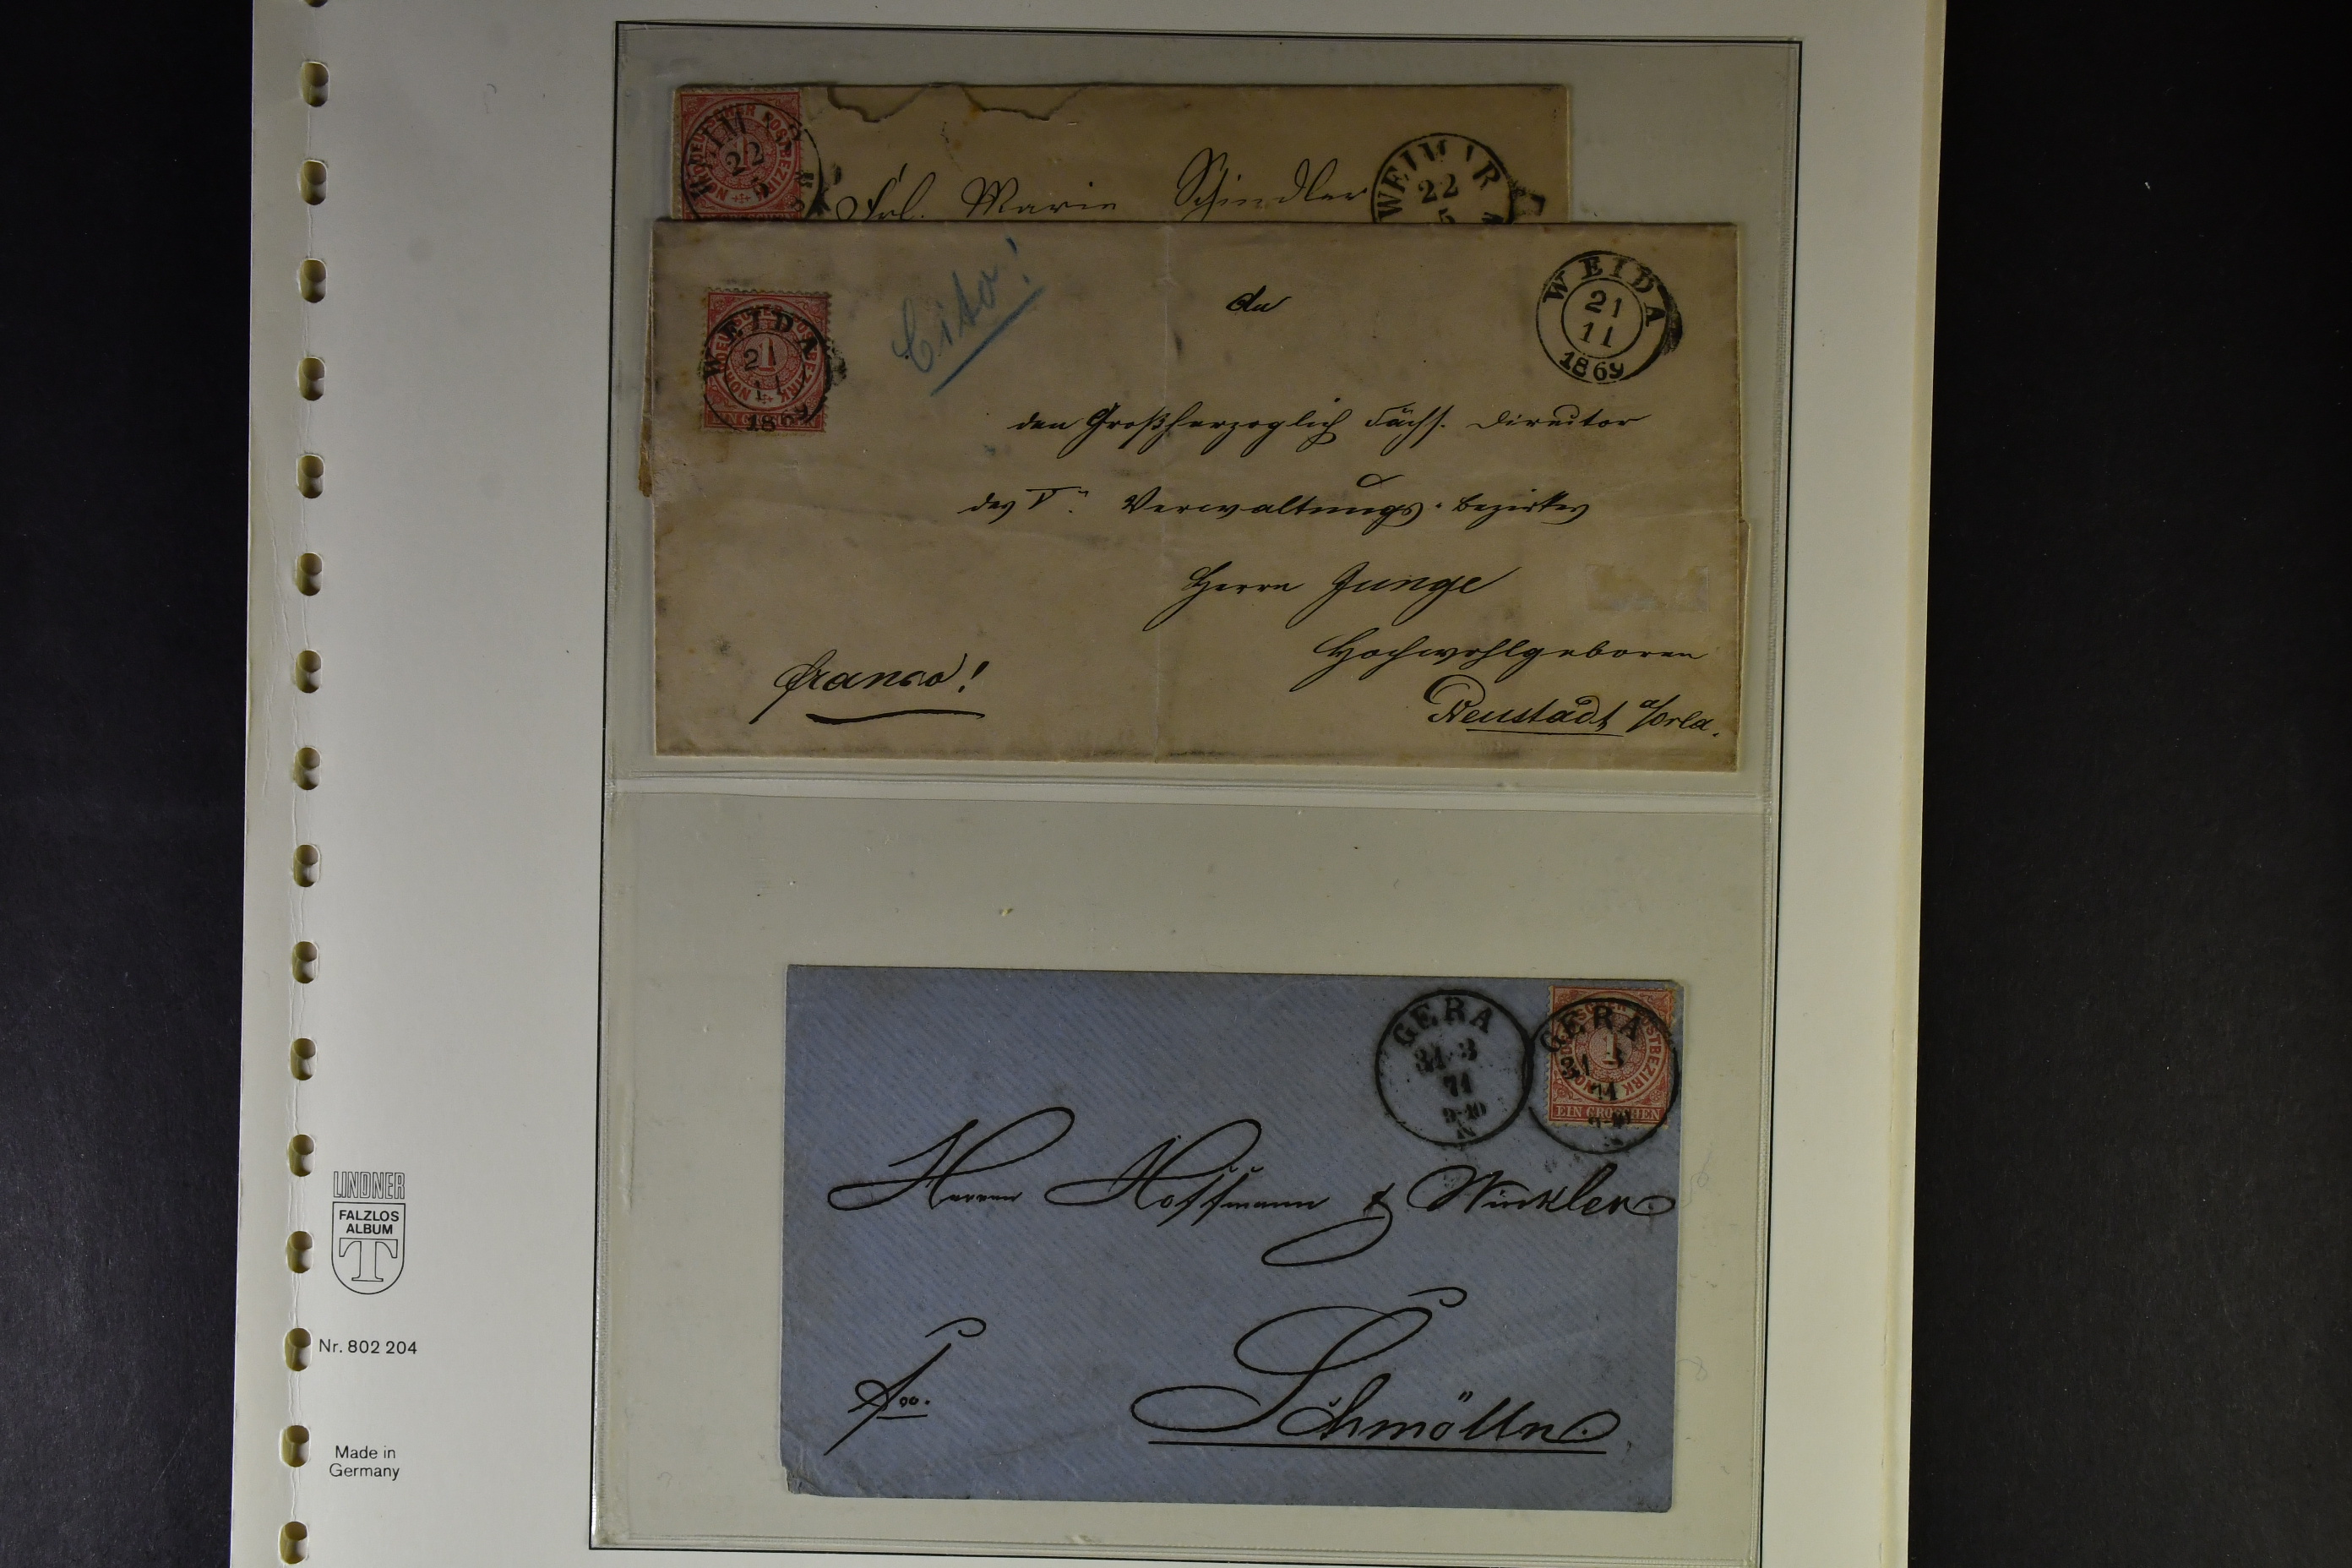 NORDDEUTSCHER POSTBEZIRK
22
5
Frl. Marie Schindler
WEIMAR
22
5
NORDDEUTSCHER POSTBEZIRK
1
WEIDA
21
11
1869
Cito!
An
WEIDA
21
11
1869
den Großherzoglich Sächs. Director
des V. Verwaltungs-Bezirkes
Herrn Junge
Hochwohlgeboren
franco!
Neustadt a/Orla.
GERA
31 3
71
9-10
N
GERA
31 3
71
1
EIN GROSCHEN
Herren Hoffmann & Winkler.
Schmölln.
LINDNER
FALZLOS
ALBUM
T
Nr. 802 204
Made in
Germany